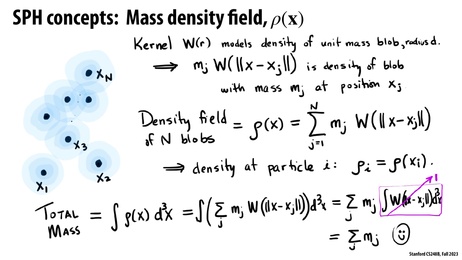 SPH concepts: Mass density field, ρ(x)
Kernel W(r) models density of unit mass blob, radius d.
⟹ mj W(||x-xj||) is density of blob
with mass mj at position xj
xN
Density field of N blobs = ρ(x) = N∑j=1 mj W(||x-xj||)
x3
⟹ density at particle i: ρi = ρ(xi).
x1
x2
TOTAL MASS = ∫ρ(x) d³x = ∫(∑j mj W(||x-xj||))d³x = ∑j mj ∫W(||x-xj||)d³x 1
= ∑j mj ☺
Stanford CS248B, Fall 2023